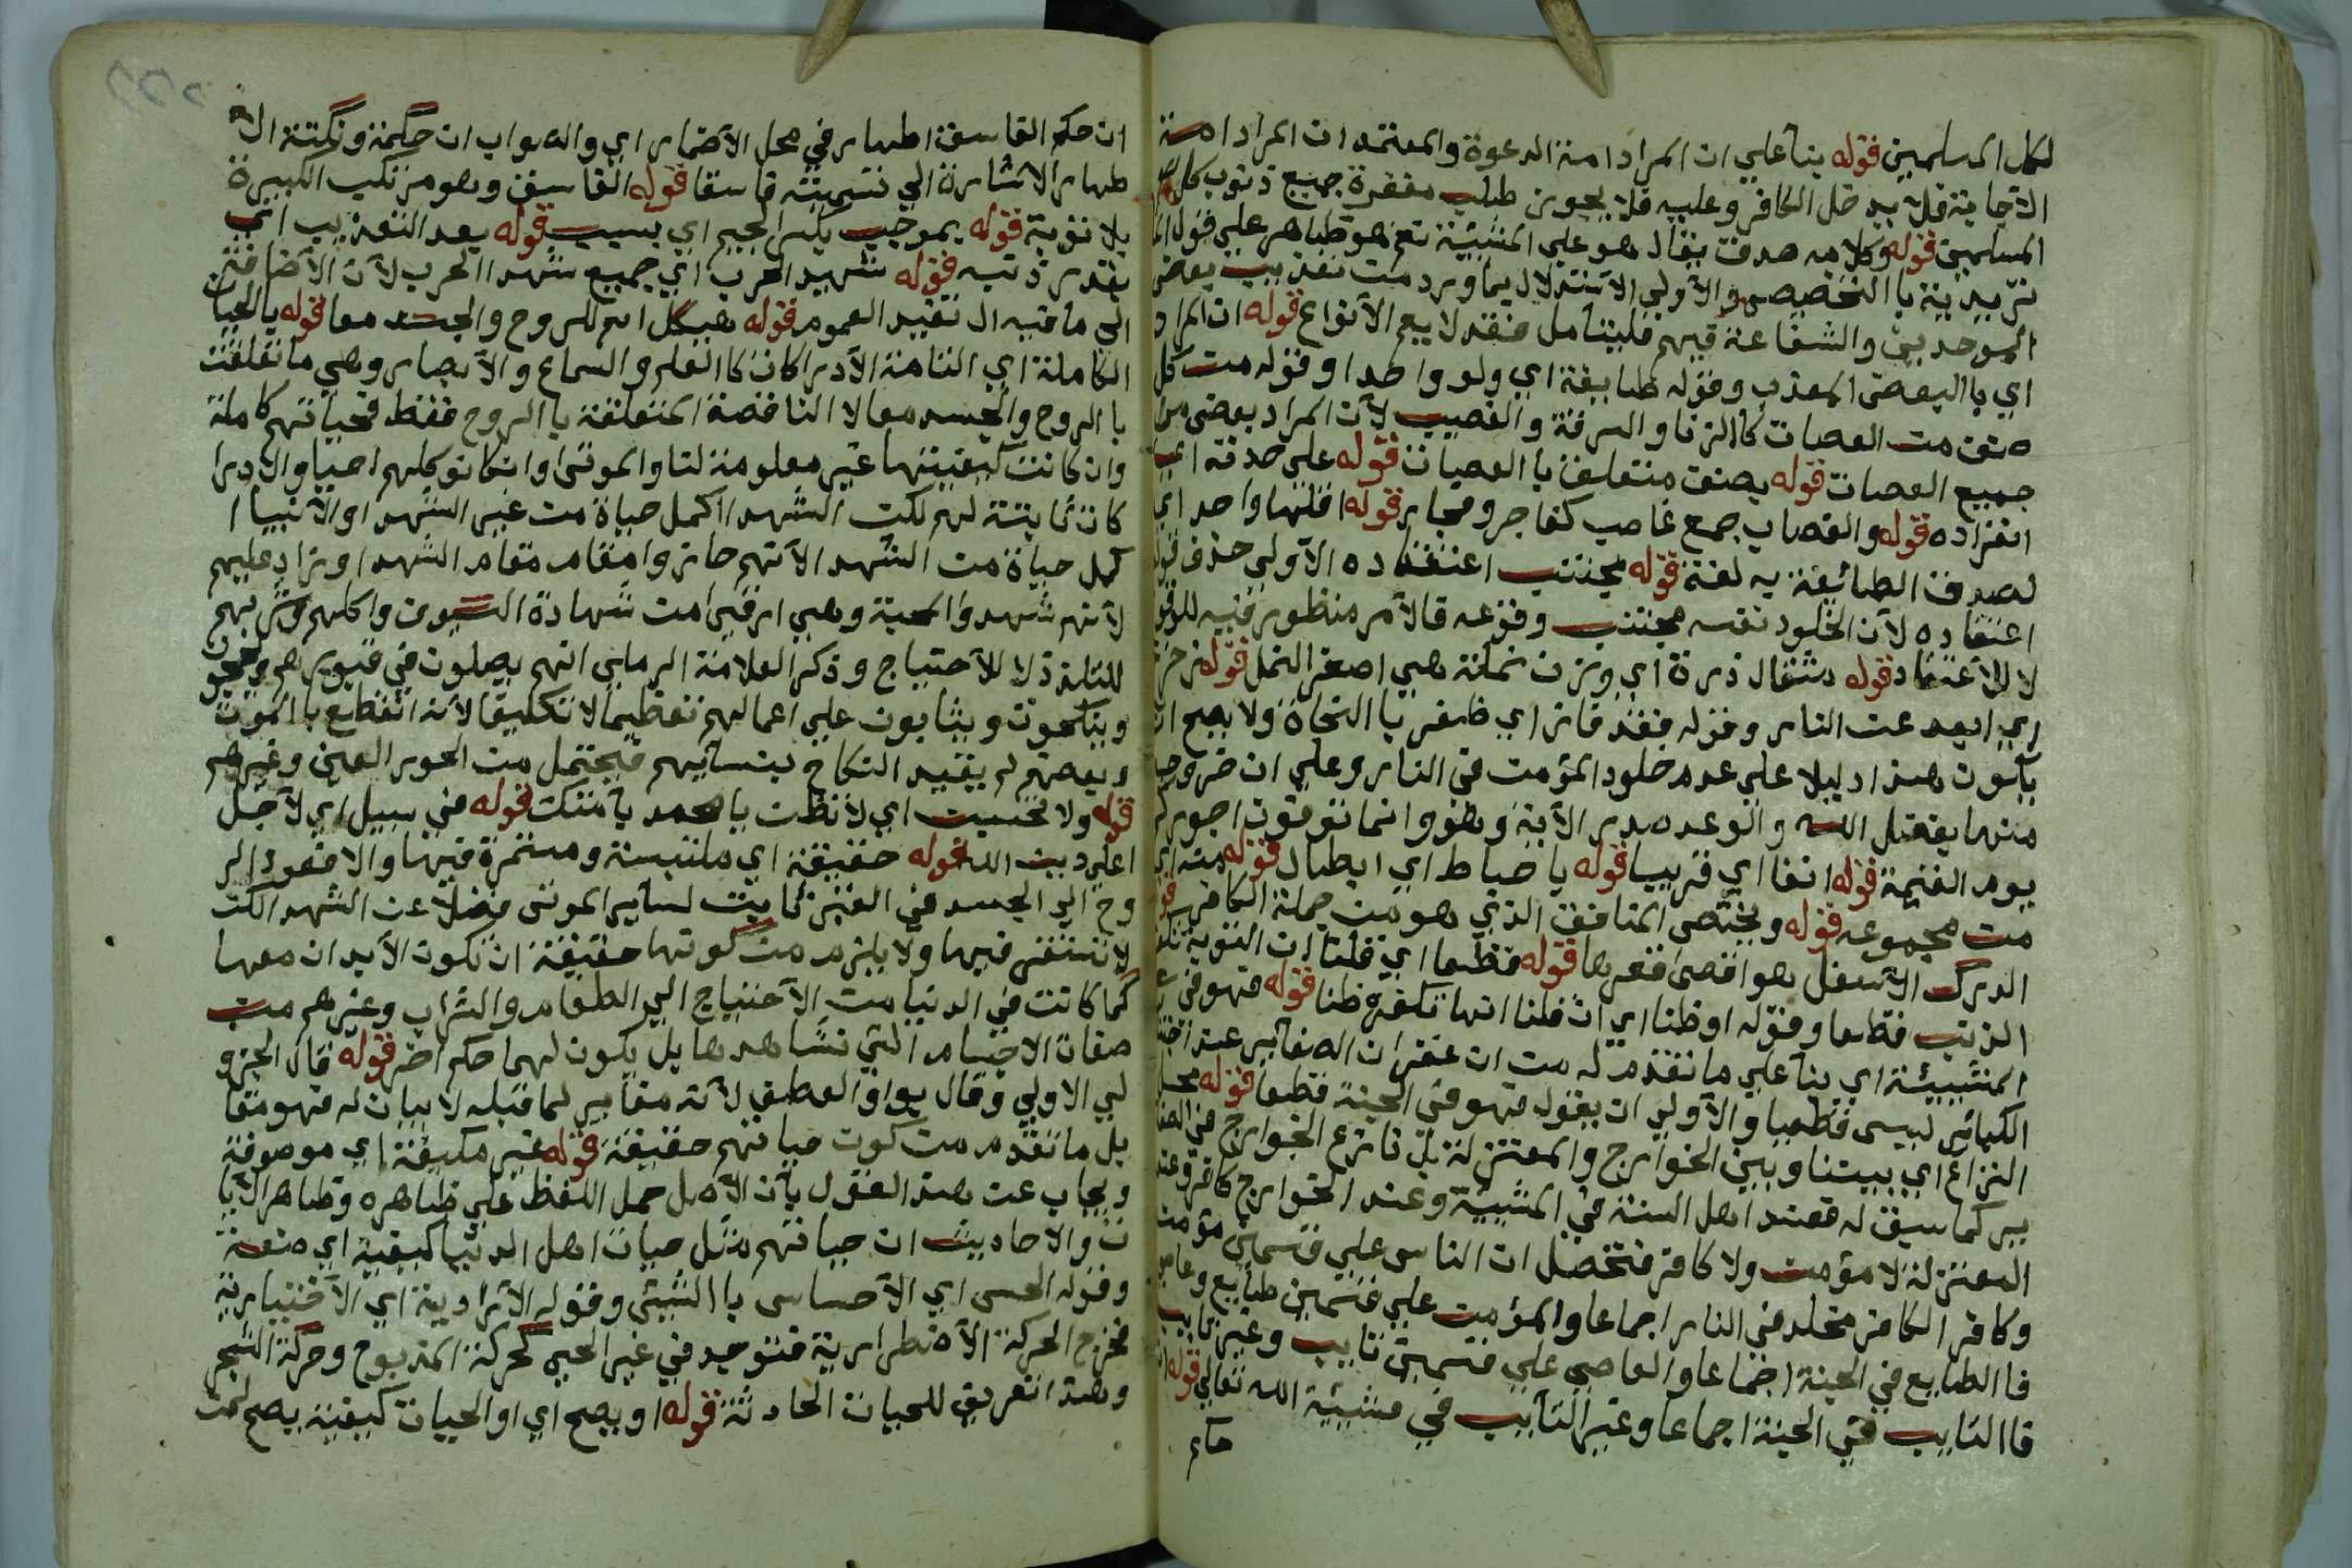 لكل المسلمين قوله بنآ علي ان المراد امة الدعوة والمعتمد ان المراد امة
الاجابة فلا يدخل الكافر وعليه فلا يجوز طلب مغفرة جميع ذنوب كل
المسلمين قوله وكلامه صدق يقال هو علي المشيئة نعم هو ظاهر علي قول الما
تريدية با التخصيص والاولي الاستدلال بما ورد من تعذيب بعض
الموحدين والشفاعة فيهم فليتآمل فقد لا يعم الانواع قوله ان المراد
اي با البعض المعذب وقوله طايفة اي ولو واحدا وقوله من كل
صنف من العصات كا الزنا والسرقة والغصب لان المراد بعض من
جميع العصات قوله بصنف متعلق با العصيان قوله علي حدته اي
انفراده قوله والغصاب جمع غاصب كفاجر وفجار قوله اقلها واحد اي
لصدق الطائفة به لغة قوله يجتنب اعتقاده الاولي حذف قوله
اعتقاده لان الخلود نفسه مجتنب وقوعه فالامر منظور فيه للوقوع
لا للاعتقاد قوله مثقال ذرة اي وزن نملة هي اصغر النمل قوله زحزح
اي ابعد عن النار وقوله فقد فاز اي ظفر با النجاة ولا يصح ان
يآنون هذا دليلا علي عدم خلود المؤمن في النار وعلي ان خروجه
منها بفضل الله والوعد صدر الاية وهو وانما توفون اجوركم
يوم القيمة قوله انفا اي قريبا قوله با حباط اي ابطال قوله منه اي
من مجموعه قوله ويختص المنافق الذي هو من جملة الكافر
الدرك الاسفل هو اقصى قعرها قوله قطعا اي قلنا ان التوبة تكفر
الذنب قطعا وقوله او ظنا اي ان قلنا انها تكفره ظنا قوله فهو في
المشيئة اي بنآ علي ما تقدم له من ان غفران الصغآير عند اجتناب
الكبآئر ليس قطعيا والاولي ان يقول فهو في الجنة قطعا قوله محل
النزاع اي بيننا وبين الخوارج والمعتزلة بل نازع الخوارج في الصغا
ير كما سبق له فعند اهل السنة في المشيئة وعند الخوارج كافر وعند
المعتزلة لا مؤمن ولا كافر فتحصل ان الناس علي قسمين مؤمن
وكافر الكافر مخلد في النار اجماعا والمؤمن علي قسمين طايع وعاصي
فا الطايع في الجنة اجماعا والعاصي علي قسمين تايب وغير تايب
فا التايب في الجنة اجماعا وغير التآيب في مشيئة الله تعالي قوله
حكم
ان حكم الفاسق اظهار في محل الاضمار اي والصواب ان حكمة ونكتة الا
ظهار الاشارة الي تسميته فاسقا قوله الفاسق وهو مرتكب الكبيرة
بلا توبة قوله بموجب بكسر الجيم اي بسبب قوله بعد التعذيب اي
بقدر ذنبه قوله شهيد الحرب اي جميع شهدا الحرب لان الاضافة
الي ما فيه ال تفيد العموم قوله هيكل اسم للروح والجسد معا قوله بالحيات
الكاملة اي التامة الادراكات كا العلم والسماع والابصار وهي ما تعلقت
با الروح والجسد معا لا الناقصة المتعلقة با الروح فقط فحياتهم كاملة
وان كانت كيفيتها غير معلومة لنا والموتى وان كانو كلهم احيا والادرا
كات ثابتة لهم لكن الشهدا اكمل حياة من غير الشهدا والانبيا ا
كمل حياة من الشهدا لانهم حازوا مقام مقام الشهدا وتزاد عليهم
لانهم شهدوا المحبة وهي ارقى من شهادة السيوف واكلهم وشربهم
للتلذذ لا للاحتياج وذكر العلامة الرملي انهم يصلون في قبورهم ويحجون
ويناكحون ويثابون علي اعمالهم تعظيما لا تكليفا لانه انقطع با الموت
وبعضهم لم يقيد النكاح بنسآئهم فيحتمل من الحور العين وغيرهم
قوله ولا تحسبن اي لا تظن يا محمد يا منكر قوله في سبيل اي لاجل
اعلاء دين الله قوله حقيقة اي ملتبسة ومستمرة فيها والا فعود الر
وح الي الجسد في القبر ثابت لسآير الموتى فضلا عن الشهدا لكن
لا تستقر فيها ولا يلزم من كونها حقيقة ان تكون الابدان معها
كما كانت في الدنيا من الاحتياج الي الطعام والشراب وغيرهم من
صفات الاجسام التي نشاهدها بل يكون لهما حكم اخر قوله قال الجزو
لي الاولي وقال بواو العطف لانه مغآير لما قبله لا بيان له فهو مقا
بل ما تقدم من كون حياتهم حقيقة قوله غير مكيفة اي موصوفة
ويجاب عن هذا القول بآن الاصل حمل اللفظ علي ظاهره وظاهر الآيا
ت والاحاديث ان حياتهم مثل حيات اهل الدنيا كيفية اي صفة
وقوله الحس اي الاحساس با الشيئ وقوله الارادية اي الاختيارية
فخرج الحركة الاضطرارية فتوجد في غير الحي كحركة المذبوح وحركة الشجر
وهذا تعريف للحيات الحادثة قوله او يصح اي او الحيات كيفية يصح لمن